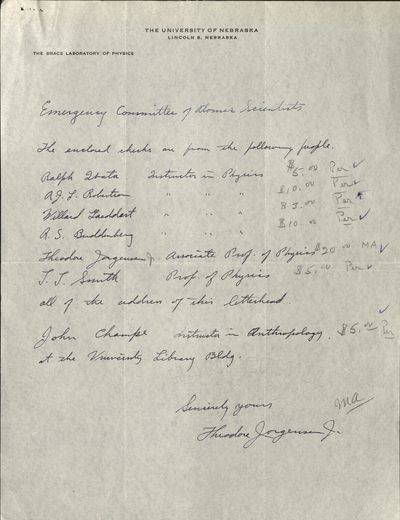 THE UNIVERSITY OF NEBRASKA
LINCOLN 8, NEBRASKA
THE BRACE LABORATORY OF PHYSICS
Emergency Committee of Atomic Scientists
The enclosed checks are from the following people.
Ralph Instructor in Physics $5.00 Per ✓
Robertson " " " $10.00 Per ✓
Willard " " " $3.00 Per
R. S. Buddenberg " " " $10.00 Per ✓
Theodore Jorgensen Jr. Associate Prof. of Physics $20.00 MA ✓
T. T. Smith Prof. of Physics $5.00 Per ✓
all of the address of this letterhead.
John Champe Instructor in Anthropology, $5.00 Per ✓
at the University Library Bldg.
Sincerely yours MA
Theodore Jorgensen Jr.